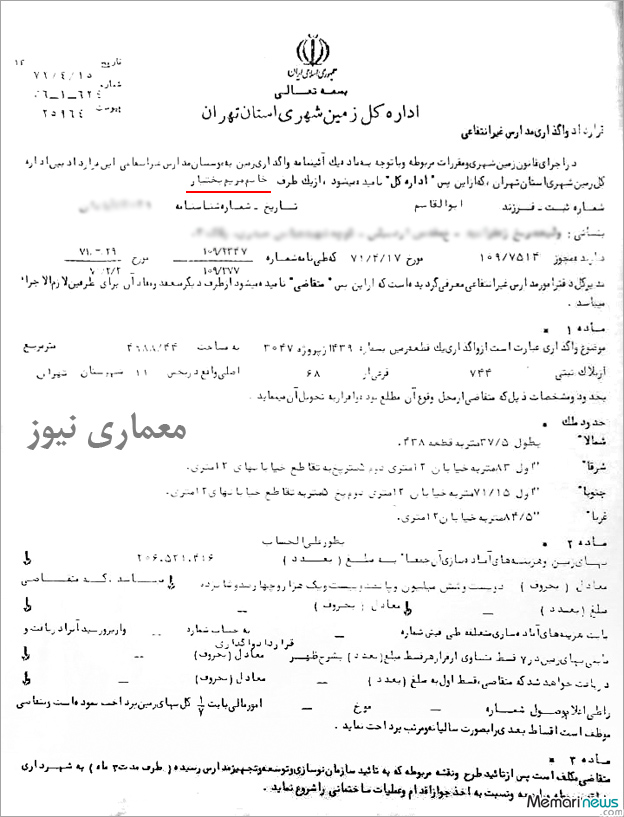 جمهوری اسلامی ایران
بسمه تعالی
اداره کل زمین شهری استان تهران
تاریخ ۷۱/۴/۱۵
شماره
پیوست ۲۵۹۶۴
قرارداد واگذاری مدارس غیرانتفاعی
در اجرای قانون زمین شهری و مقررات مربوطه و با توجه به ماده یک آئیننامه واگذاری زمین به موسسان مدارس غیرانتفاعی این قرارداد بین اداره
کل زمین شهری استان تهران ، که از این پس " اداره کل " نامیده میشود ، از یک طرف خانم مریم بختیار
شماره ثبت - فرزند ابوالقاسم تاریخ - شماره شناسنامه
بنشانی :
دارنده مجوز ۱۰۹/۷۵۱۴ مورخ ۷۱/۴/۱۷ که طی نامه شماره ۱۰۹/۲۳۴۷ مورخ
مدیرکل دفتر امور مدارس غیرانتفاعی معرفی گردیده است که از این پس " متقاضی " نامیده میشود از طرف دیگر منعقد و مفاد آن برای طرفین لازم الاجرا
میباشد .
ماده ۱
موضوع واگذاری عبارت است از واگذاری یک قطعه زمین بشماره ۱۴۳۹ از پروژه ۳۰۴۷ به مساحت ۴۹۸۸/۴۴ مترمربع
از پلاک ثبتی ۷۴۴ فرعی از ۶۸ اصلی واقع در بخش ۱۱ شهرستان تهران
بحدود و مشخصات ذیل که متقاضی از محل وقوع آن مطلع بوده و اقرار به تحویل آن مینماید .
حدود ملک
شمالا" بطول ۳۷/۵ متر به قطعه ۴۳۸.
شرقا" اول ۸۳ متر به خیابان ۱۲ متری دوم ۵ متر پخ به تقاطع خیابانهای ۱۲ متری.
جنوبا" اول ۷۱/۱۵ متر به خیابان ۱۲ متری دوم پخ ۵ متر به تقاطع خیابانهای ۱۲ متری.
غربا" ۸۴/۵ متر به خیابان ۱۲ متری.
معماری نیوز
ماده ۲ بطور علی الحساب
بهای زمین و هزینه های آماده سازی آن جمعا" به مبلغ ( بعدد ) ۲۰۶.۵۲۱.۴۱۶
معادل ( بحروف ) دویست و شش میلیون و پانصد و بیست و یک هزار و چهارصد و شانزده میباشد . که متقاضی
مبلغ ( بعدد ) — معادل ( بحروف ) —
بابت هزینه های آماده سازی متعلقه طی فیش شماره — به حساب شماره -- واریز و رسید آنرا دریافت و
قرارداد واگذاری
مابقی بهای زمین در ۷ قسط متساوی از قرار هر قسط مبلغ ( بعدد ) بشرح ظهر معادل ( بحروف ) —
دریافت خواهد شد که متقاضی، قسط اول به مبلغ ( بعدد ) — معادل ( بحروف ) —
را طی اعلام وصول شماره — مورخ — امور مالی بابت ۱/۷ کل بهای زمین پرداخت نموده است و متقاضی
موظف است اقساط بعدی را بصورت سالیانه و مرتب پرداخت نماید .
ماده ۳
متقاضی مکلف است پس از تائید طرح و نقشه مربوطه که به تائید سازمان نوسازی و توسعه و تجهیز مدارس رسیده ( ظرف مدت ۳ ماه ) به شهرداری
و نسبت به اخذ جواز اقدام و عملیات ساختمانی را شروع نماید .
Memarinews.com